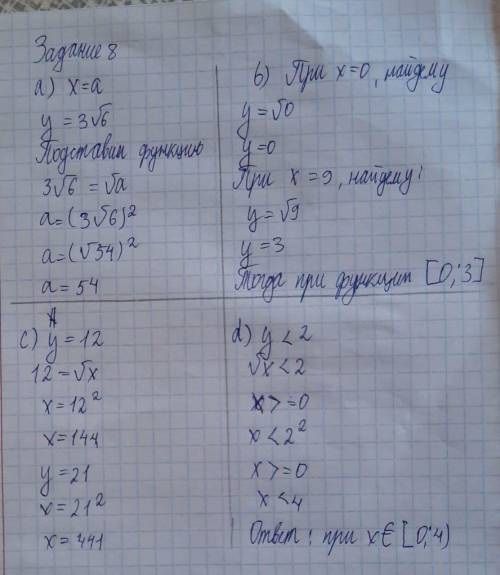 Задание 8
а) x=a
y = 3√6
Подставим функцию
3√6 = √a
a=(3√6)²
a=(√54)²
a = 54
b) При x=0, найдем y
y=√0
y=0
При x=9, найдем y:
y=√9
y=3
Тогда при функции [0;3]
c) y=12
12=√x
x=12²
x=144
y=21
x=21²
x=441
d) y<2
√x<2
x>=0
x<2²
x>=0
x<4
Ответ: при x∈[0;4)